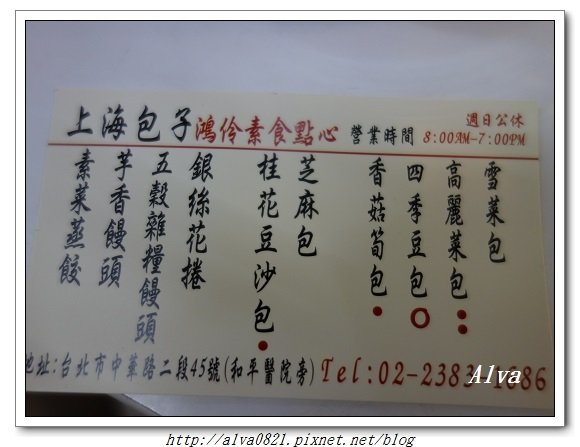 上海包子鴻伶素食點心 營業時間 8:00AM-7:00PM
週日公休
雪菜包
高麗菜包
四季豆包
香菇筍包
芝麻包
桂花豆沙包
銀絲花捲
五穀雜糧饅頭
芋香饅頭
素菜蒸餃
地址:台北市中華路二段45號(和平醫院旁) Tel:02-2383-1686
Alva
http://alva0821.pixnet.net/blog